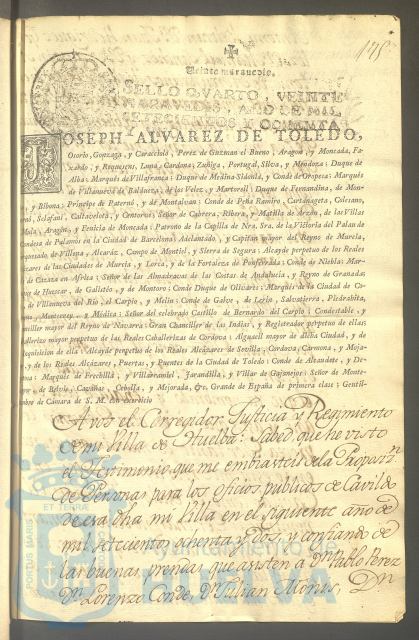 175
Veinte maravedis.
SELLO QVARTO, VEINTE
MARAVEDIS, AÑO DE MIL
SETECIENTOS Y OCHENTA
JOSEPH ALVAREZ DE TOLEDO,
Osorio, Gonzaga, y Caracciolo, Perez de Guzman el Bueno, Aragon, y Moncada, Fa-
xardo, y Requesens, Luna, Cardona, Zuñiga, Portugal, Silva, y Mendoza: Duque de
Alba: Marqués de Villafranca: Duque de Medina Sidonia, y Conde de Oropesa: Marqués
de Villanueva de Baldueza, de los Velez, y Martorell: Duque de Fernandina, de Mon-
, y Bibona: Príncipe de Paternó, y de Montalvan: Conde de Peña Ramiro, Cartanageta, Colesano,
Sclafani, Caltavelota, y Centorvi: Señor de Cabrera, Ribera, y Matilla de Arzon, de las Villas
Mula, Aragón, y Fenicia de Moncada: Patrono de la Capilla de Nra. Sra. de la Victoria del Palau de
Condesa de Palamós en la Ciudad de Barcelona: Adelantado, y Capitan mayor del Reyno de Murcia,
Marquesado de Villena, Alcaráz, Campo de Montiel, y Sierra de Segura: Alcayde perpetuo de los Reales
Alcazares de las Ciudades de Murcia, y Lorca, y de la Fortaleza de Ponferrada: Conde de Niebla: Mar-
de Cazaza en Africa: Señor de las Almadravas de las Costas de Andalucia, y Reyno de Granada:
de Huescar, de Galisteo, y de Montoro: Conde Duque de Olivares: Marqués de la Ciudad de Co-
de Villanueva del Rio, el Carpio, y Melin: Conde de Galve, de Lerin, Salvatierra, Piedrahita,
Monterrey, y Módica: Señor del celebrado Castillo de Bernardo del Carpio: Condestable, y
Chanciller mayor del Reyno de Navarra: Gran Chanciller de las Indias, y Registrador perpetuo de ellas:
Caballerizo mayor perpetuo de las Reales Caballerizas de Cordova: Alguacil mayor de dicha Ciudad, y de
Inquisicion de ella: Alcayde perpetuo de los Reales Alcázares de Sevilla, Cordova, Carmona, y Moja-
, y de los Reales Alcázares, Puertas, y Puentes de la Ciudad de Toledo: Conde de Alcaudete, y De-
: Marqués de Frechilla, y Villarramiel, Jarandilla, y Villar de Gajanejos: Señor de Monte-
, de Belvis, Cavañas, Cebolla, y Mejorada, &c. Grande de España de primera clase: Gentil-
hombre de Cámara de S. M. con exercicio
A vos el Corregidor Justicia y Regimiento
de mi Villa de Huelba: Sabed que he visto
el Testimonio que me embiasteis de la Proposizn.
de Personas para los oficios públicos de Cavildo
de esa dha mi Villa en el siguiente año de
mil setecientos ochenta y dos, y confiando de
las buenas prendas que asisten a Dn. Pablo Perez
Dn. Lorenzo Conde, Dn. Julian Monis, Dn
ET TERRÆ
PORTUS MARIS
Ayuntamiento de
HUELVA